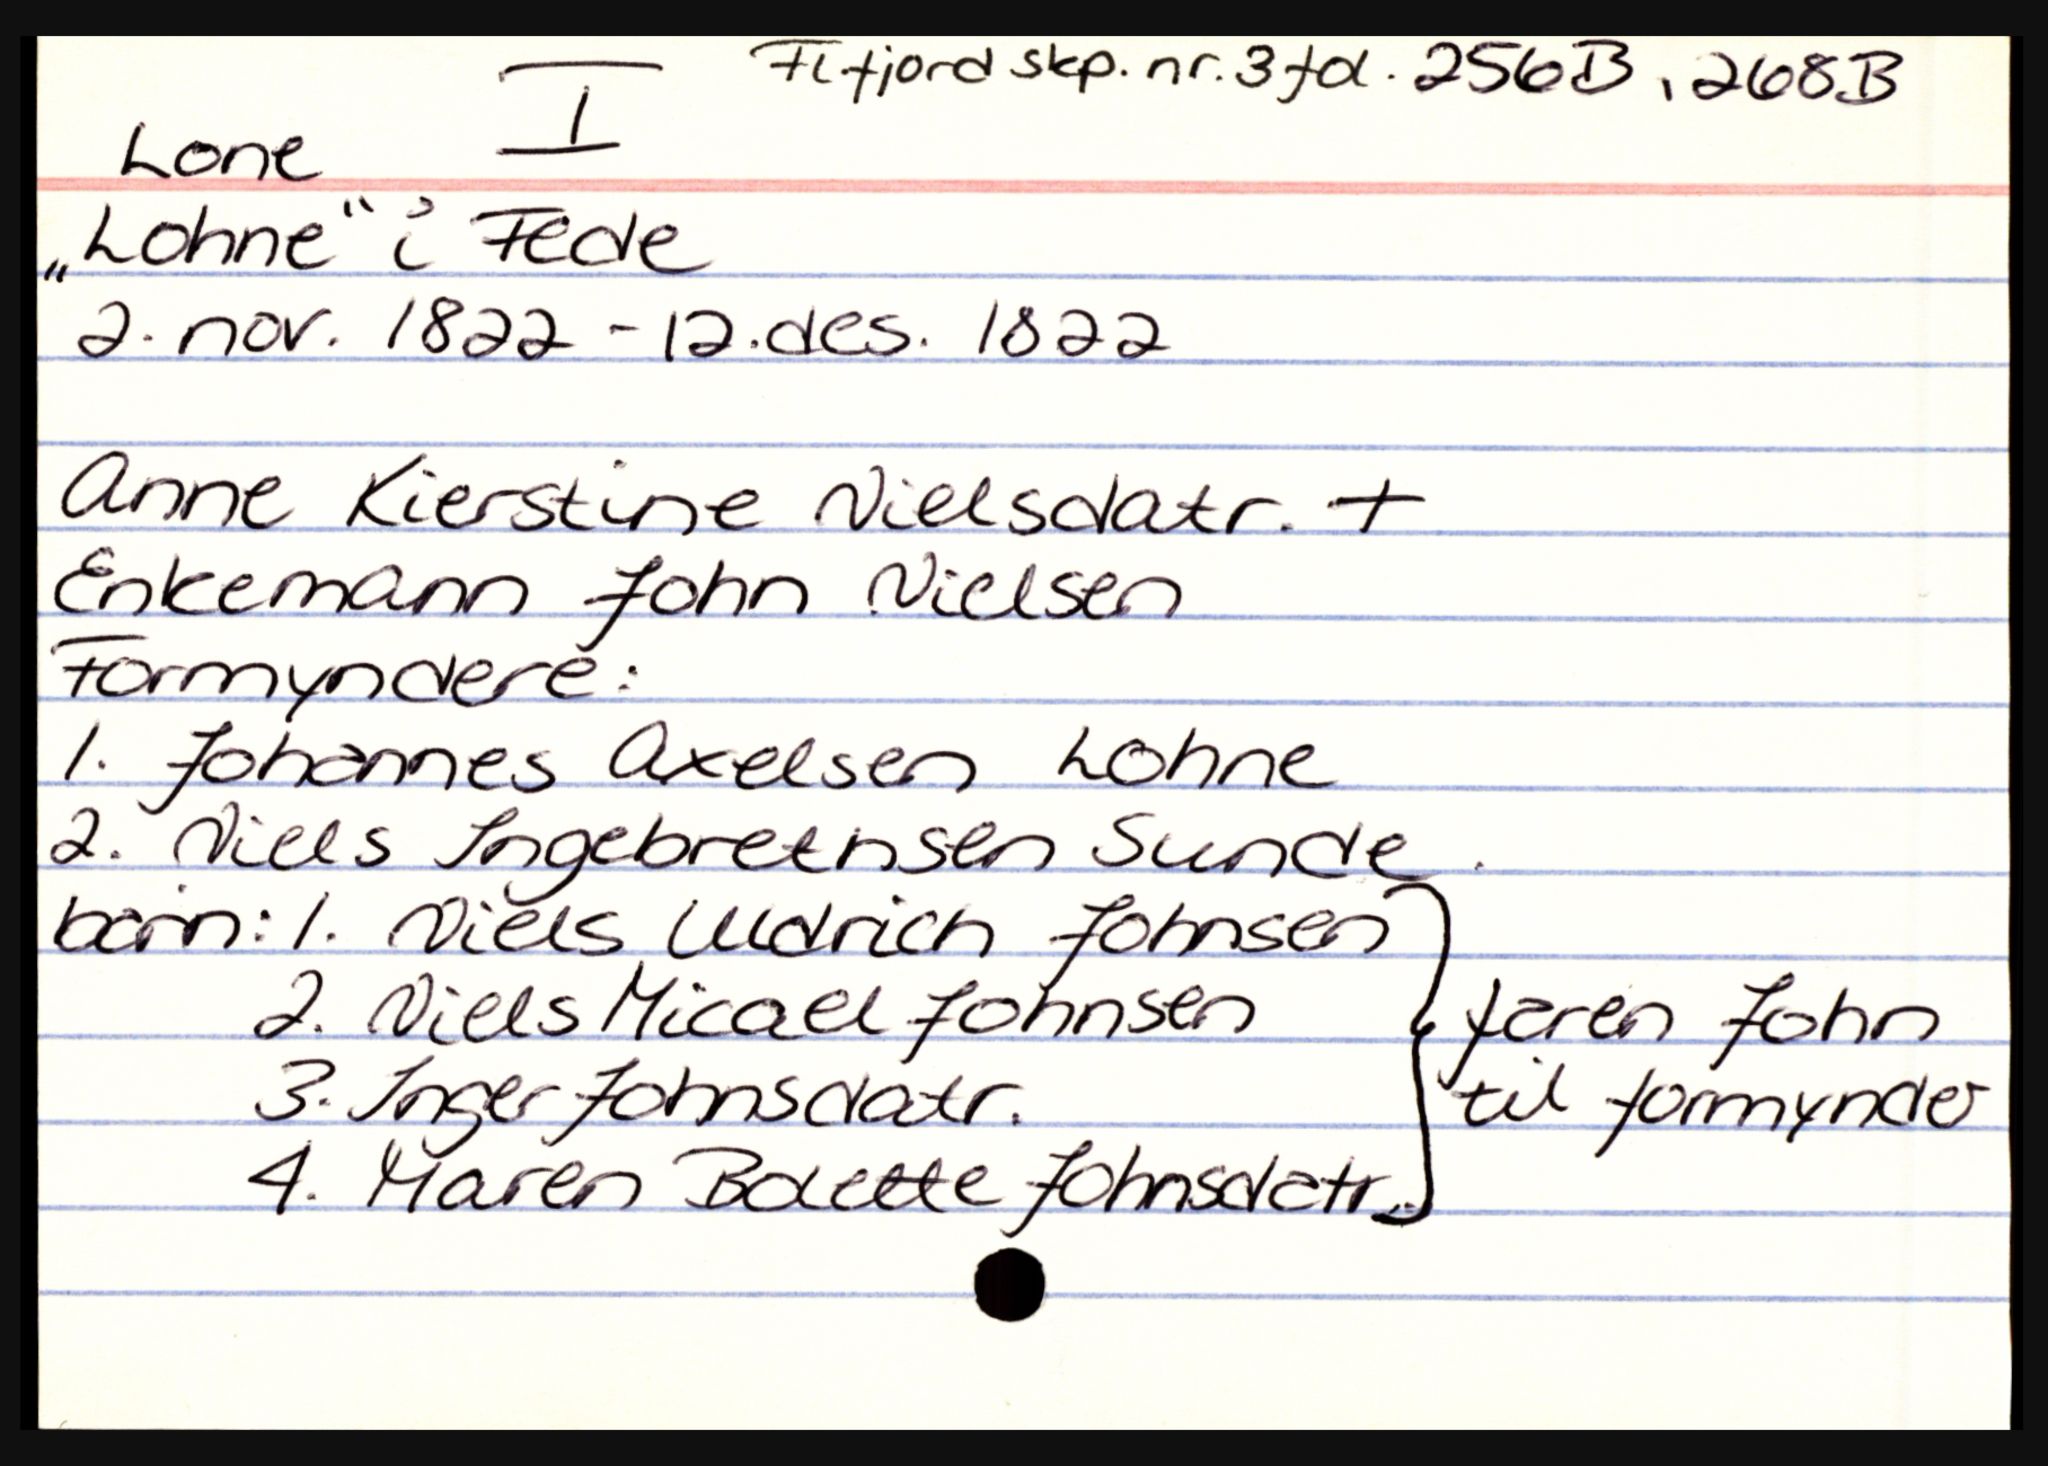 I Fl.fjord skp. nr. 3 fol. 256B, 268B
Lone
„Lohne“ i Fede
2. nov. 1822 - 12. des. 1822
Anne Kierstine Nielsdatr. +
Enkemann John Nielsen
Formyndere:
1. Johannes Axelsen Lohne
2. Niels Ingebretnsen Sunde.
barn: 1. Niels Uldrich Johnsen
2. Niels Micael Johnsen
3. Inger Johnsdatr.
4. Maren Bolette Johnsdatr.
faren John
til formynder